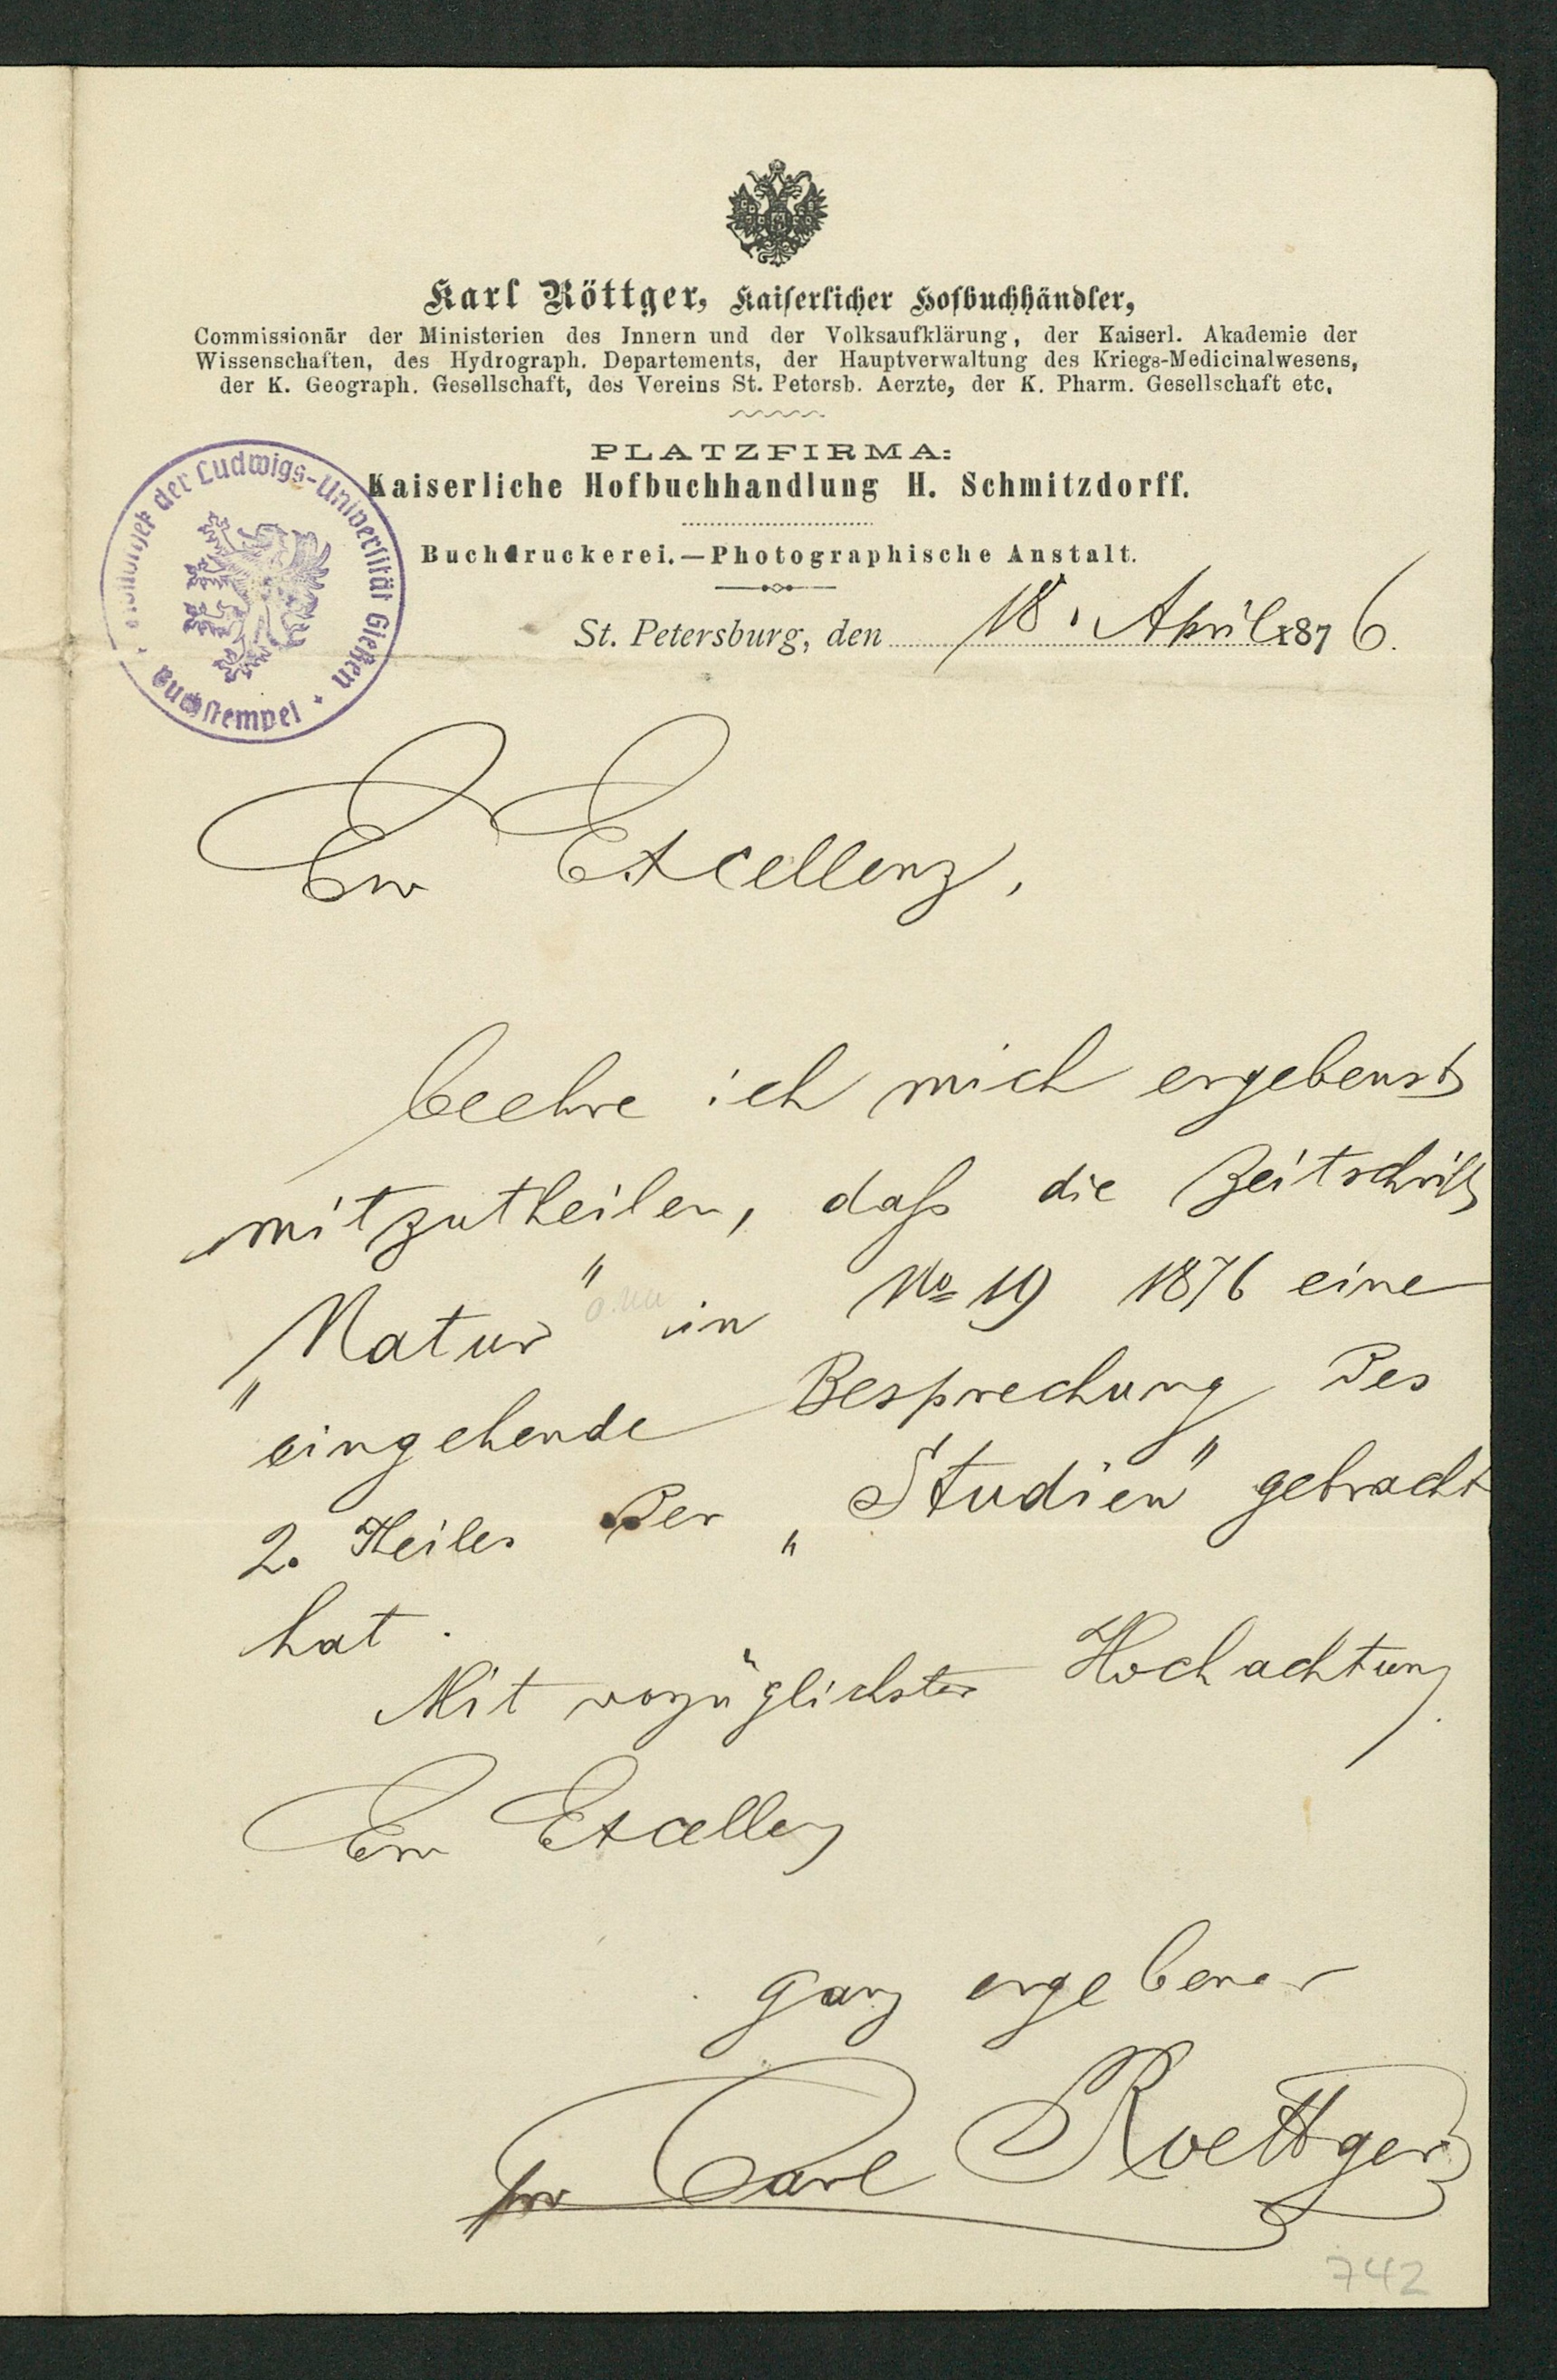 Karl Röttger, Kaiserlicher Hofbuchhändler,
Commissionär der Ministerien des Innern und der Volksaufklärung, der Kaiserl. Akademie der
Wissenschaften, des Hydrograph. Departements, der Hauptverwaltung des Kriegs-Medicinalwesens,
der K. Geograph. Gesellschaft, des Vereins St. Petersb. Aerzte, der K. Pharm. Gesellschaft etc.
PLATZFIRMA:
Kaiserliche Hofbuchhandlung H. Schmitzdorff.
Buchdruckerei.—Photographische Anstalt.
Bibliothek der Ludwigs-Universität Gießen
Buchstempel
St. Petersburg, den 18. April 1876.
Ew Excellenz,
beehre ich mich ergebenst
mitzutheilen, daß die Zeitschrift
„Natur“ in No 19 1876 eine
eingehende Besprechung des
2. Theiles der „Studien“ gebracht
hat.
Mit vorzüglichster Hochachtung
Ew Excellenz
ganz ergebener
pr Carl Roettger
742